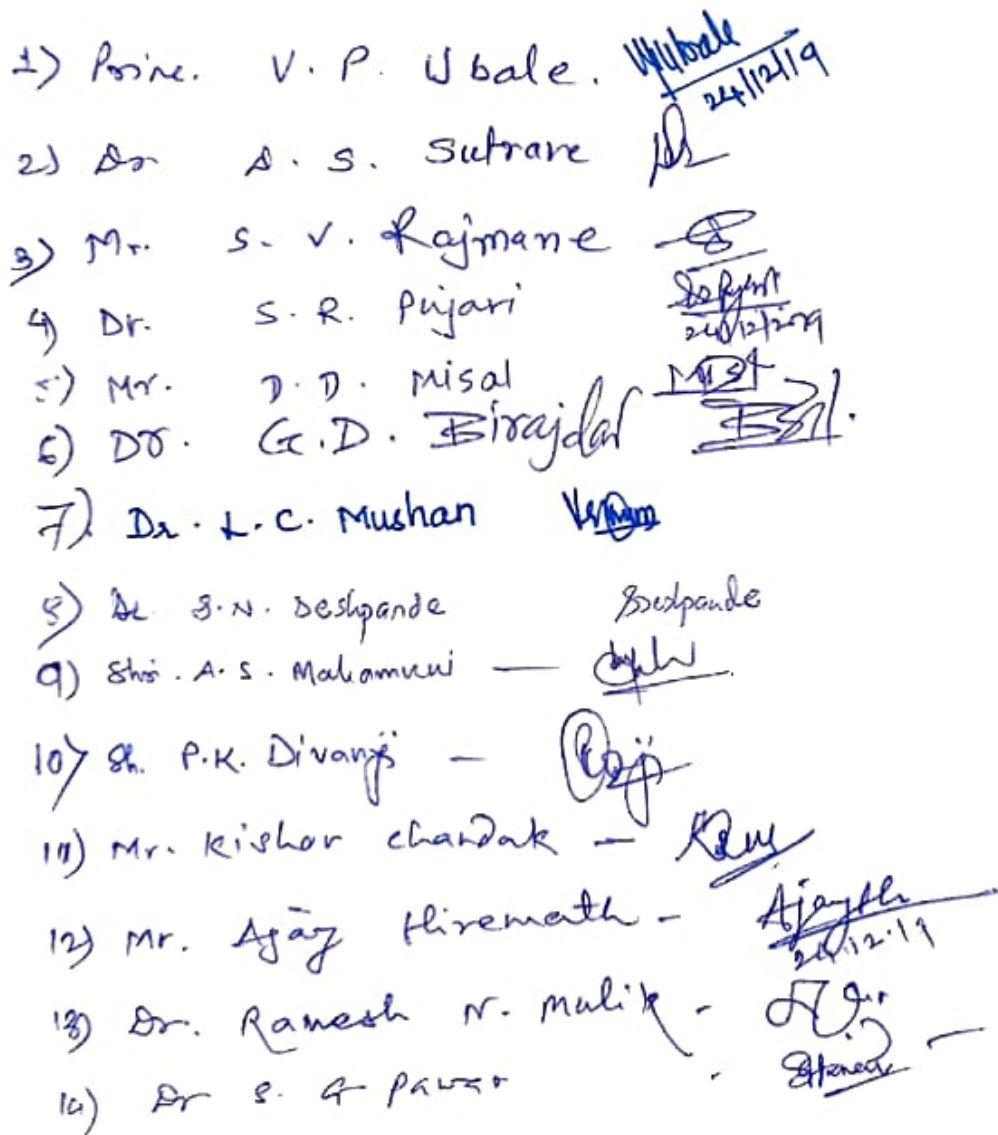 1) Prine. V. P. Ubale. VPUbale
24/12/19
2) Dr A. S. Sutrare
3) Mr. S. V. Rajmane
4) Dr. S. R. Pujari
24/12/2019
5) Mr. D. D. Misal
6) Dr. G. D. Birajdar
7) Dr. L. C. Mushan
8) Dr. S. N. Deshpande SDeshpande
9) Shri. A. S. Mahamuni —
10) Sh. P. K. Divanji —
11) Mr. Kishor Chandak —
12) Mr. Ajay Hiremath -
24.12.19
13) Dr. Ramesh N. Mulik -
14) Dr S. G Pawar